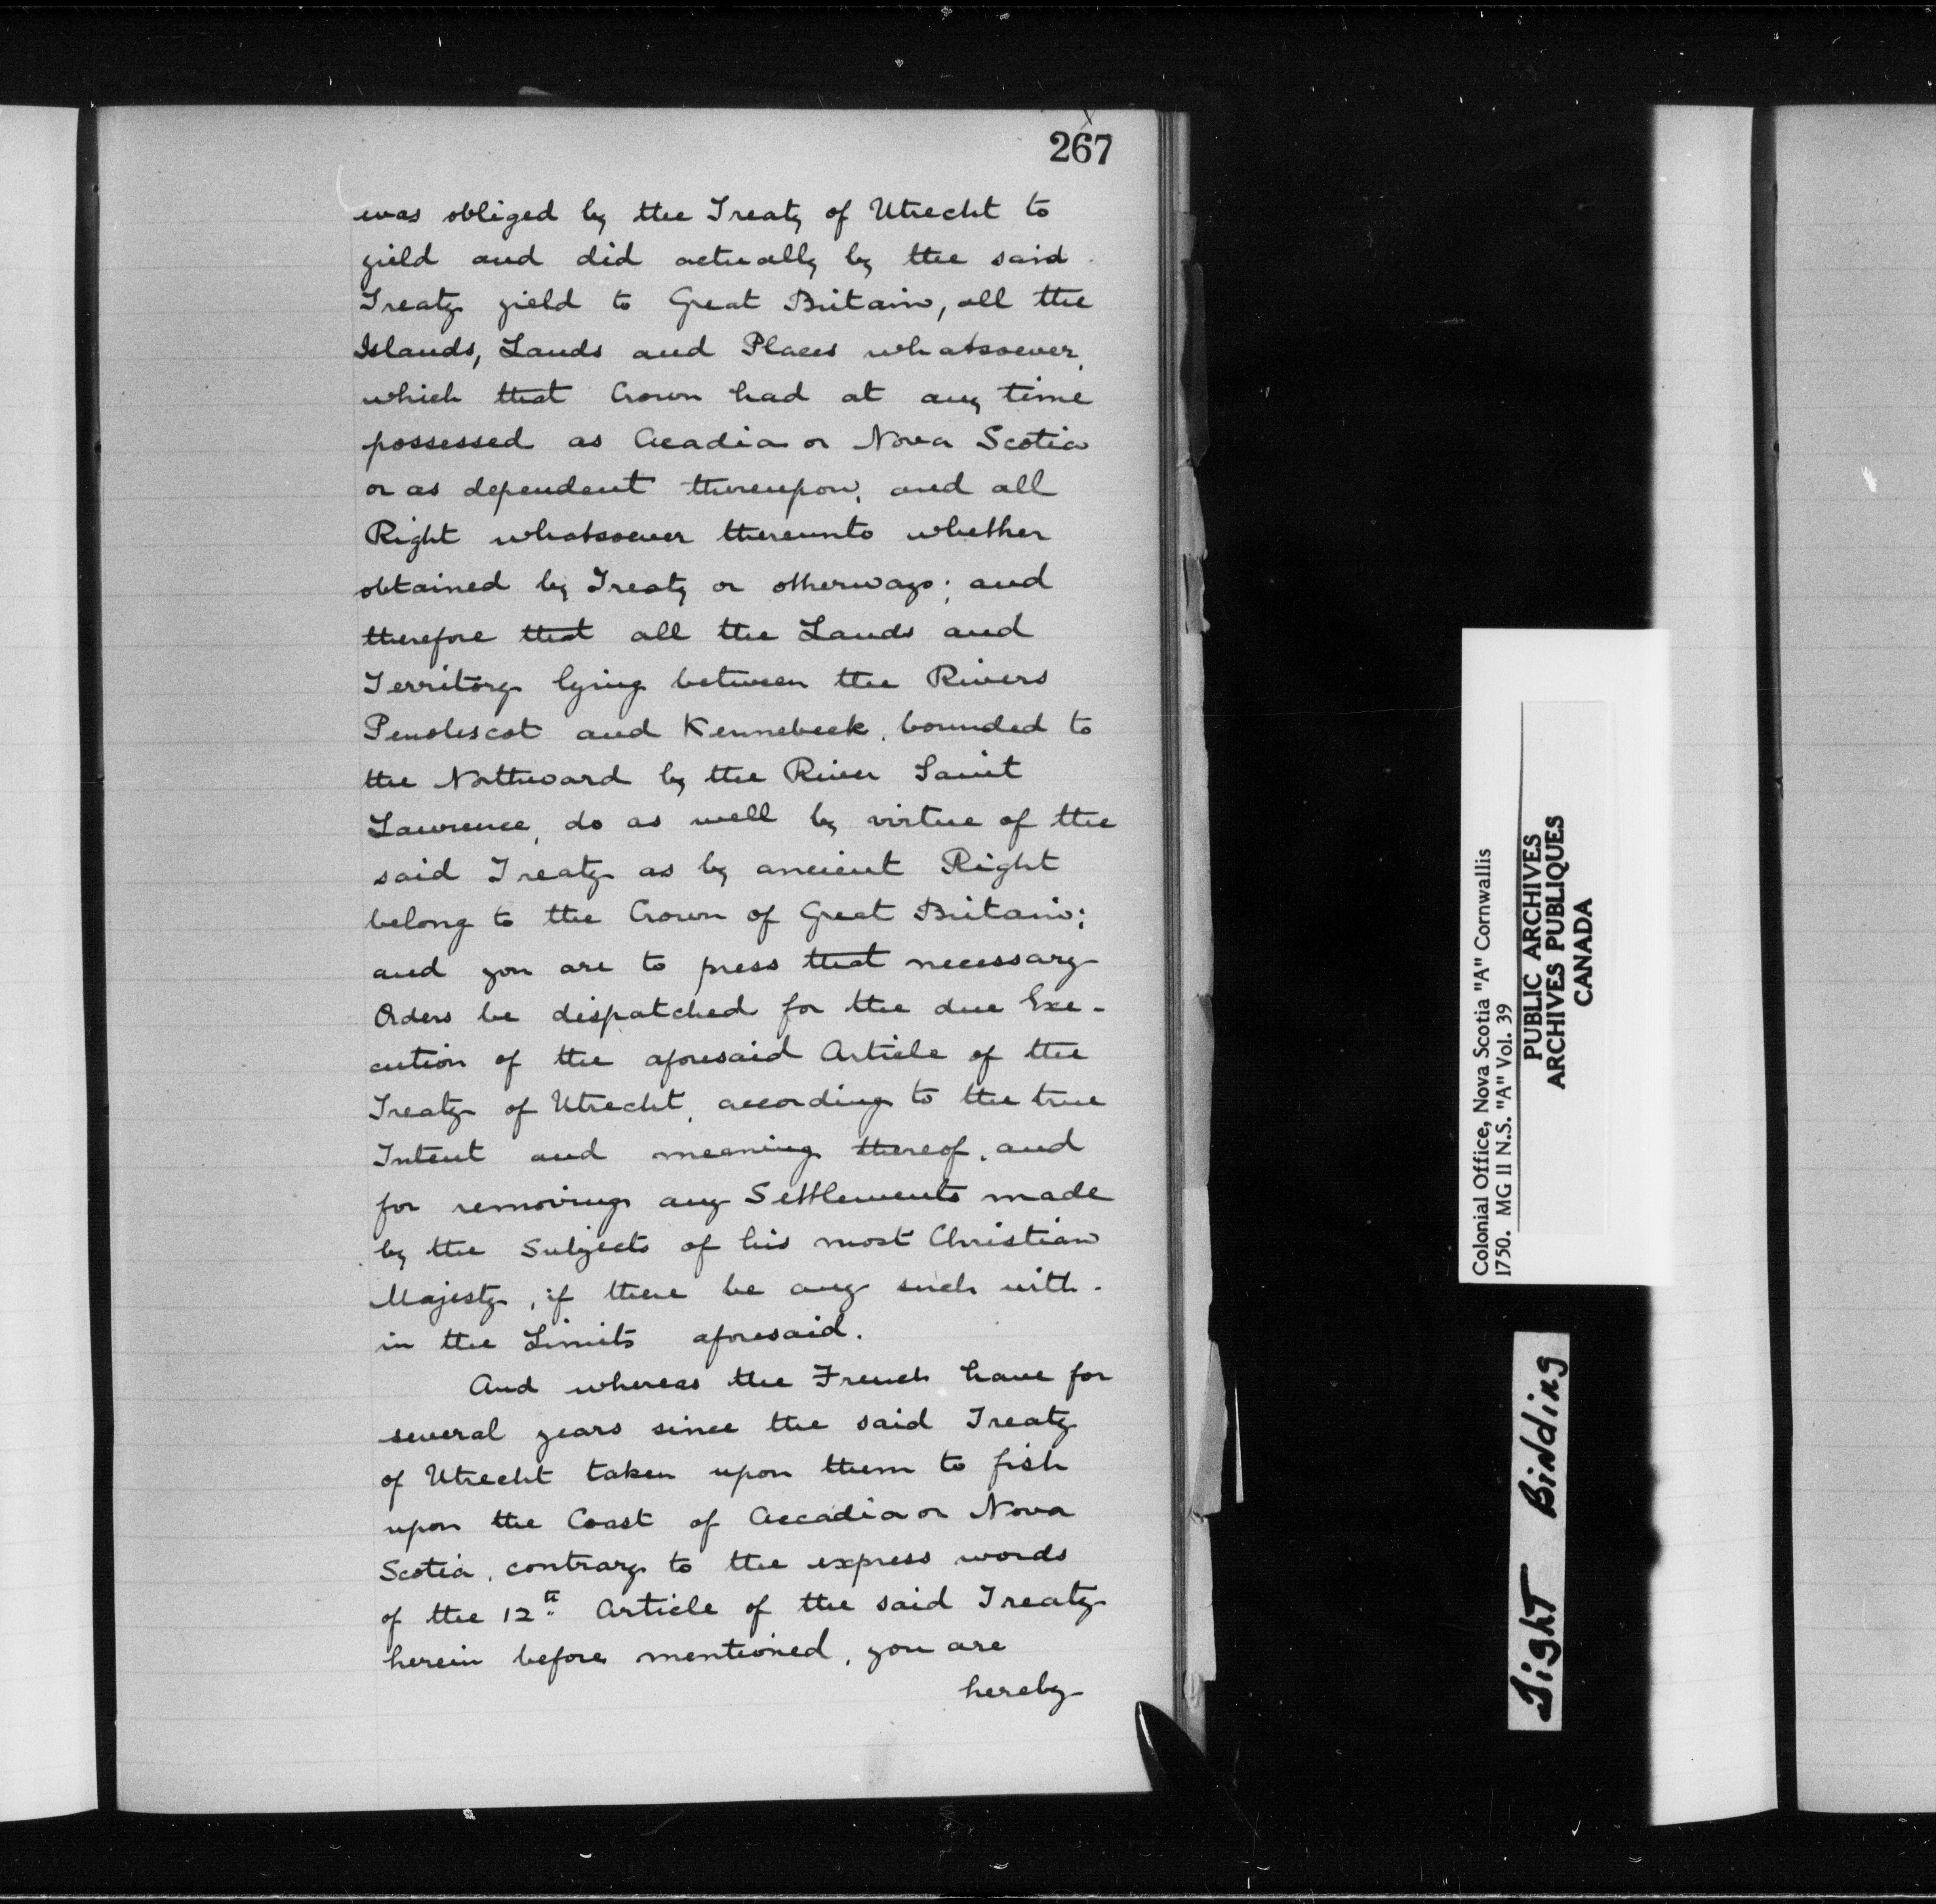 267
was obliged by the Treaty of Utrecht to
yield and did actually by the said
Treaty yield to Great Britain, all the
Islands, Lands and Places whatsoever,
which that Crown had at any time
possessed as Acadia or Nova Scotia
or as dependent thereupon, and all
Right whatsoever thereunto whether
obtained by Treaty or otherways; and
therefore that all the Lands and
Territory lying between the Rivers
Penobscot and Kennebeck, bounded to
the Northward by the River Saint
Lawrence, do as well by virtue of the
said Treaty as by ancient Right
belong to the Crown of Great Britain;
and you are to press that necessary
Orders be dispatched for the due Exe-
cution of the aforesaid Article of the
Treaty of Utrecht, according to the true
Intent and meaning thereof, and
for removing any Settlements made
by the Subjects of his most Christian
Majesty, if there be any such with-
in the Limits aforesaid.
And whereas the French have for
several years since the said Treaty
of Utrecht taken upon them to fish
upon the Coast of Accadia or Nova
Scotia, contrary to the express words
of the 12th Article of the said Treaty
herein before mentioned, you are
hereby
Colonial Office, Nova Scotia "A" Cornwallis
1750. MG 11 N.S. "A" Vol. 39
PUBLIC ARCHIVES
ARCHIVES PUBLIQUES
CANADA
Tight Binding